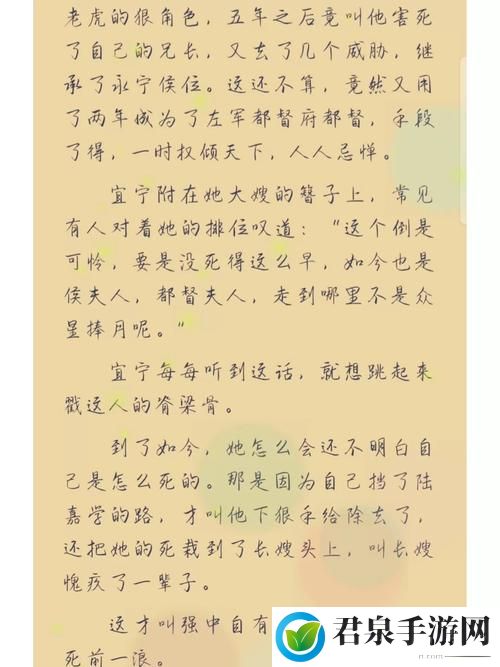 老虎的狠角色，五年之后竟叫他害死
了自己的兄长，又去了几个威胁，继
承了永宁侯位。这还不算，竟然又用
了两年成为了左军都督府都督，手段
了得，一时权倾天下，人人忌惮。
宜宁附在她大嫂的簪子上，常见
有人对着她的排位叹道：“这个倒是
可怜，要是没死得这么早，如今也是
侯夫人，都督夫人，走到哪里不是众
星捧月呢。”
宜宁每每听到这话，就想跳起来
戳这人的脊梁骨。
到了如今，她怎么会还不明白自
己是怎么死的。那是因为自己挡了陆
嘉学的路，才叫他下狠手给除去了，
还把她的死栽到了长嫂头上，叫长嫂
愧疚了一辈子。
这才叫强中自有
死前一浪。
君泉手游网